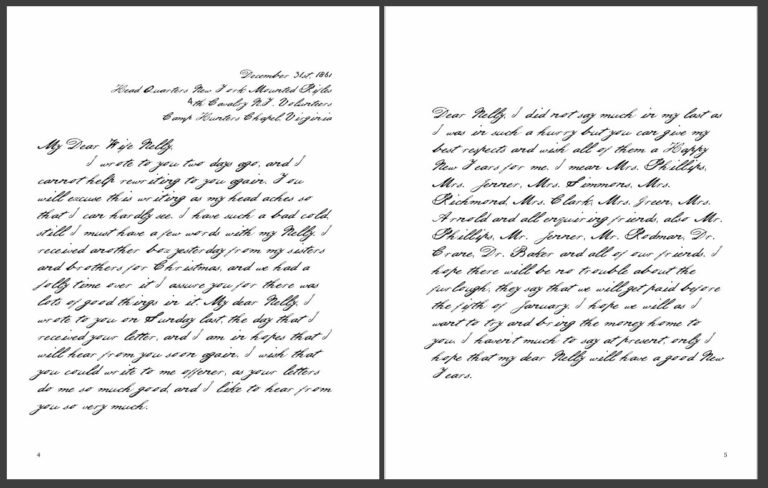 December 31st, 1861
Head Quarters New York Mounted Rifles
4th Cavalry N.Y. Volunteers
Camp Hunters Chapel, Virginia
My Dear Wife Nelly,
I wrote to you two days ago, and I
cannot help rewriting to you again. You
will excuse this writing as my head aches so
that I can hardly see. I have such a bad cold,
still I must have a few words with my Nelly. I
received another box yesterday from my sisters
and brothers for Christmas, and we had a
jolly time over it I assure you for there was
lots of good things in it. My dear Nelly, I
wrote to you on Sunday last, the day that I
received your letter, and I am in hopes that I
will hear from you soon again. I wish that
you could write to me oftener, as your letters
do me so much good, and I like to hear from
you so very much.
4
Dear Nelly, I did not say much in my last as
I was in such a hurry but you can give my
best respects and wish all of them a Happy
New Years for me. I mean Mrs. Phillips,
Mrs. Jenner, Mrs. Simmons, Mrs.
Richmond, Mrs. Clark, Mrs. Green, Mrs.
Arnold and all enquiring friends, also Mr.
Phillips, Mr. Jenner, Mr. Rodman, Dr.
Crane, Dr. Baker and all of our friends. I
hope there will be no trouble about the
furlough, they say that we will get paid before
the fifth of January. I hope we will as I
want to try and bring the money home to
you. I haven't much to say at present, only I
hope that my dear Nelly will have a good New
Years.
5